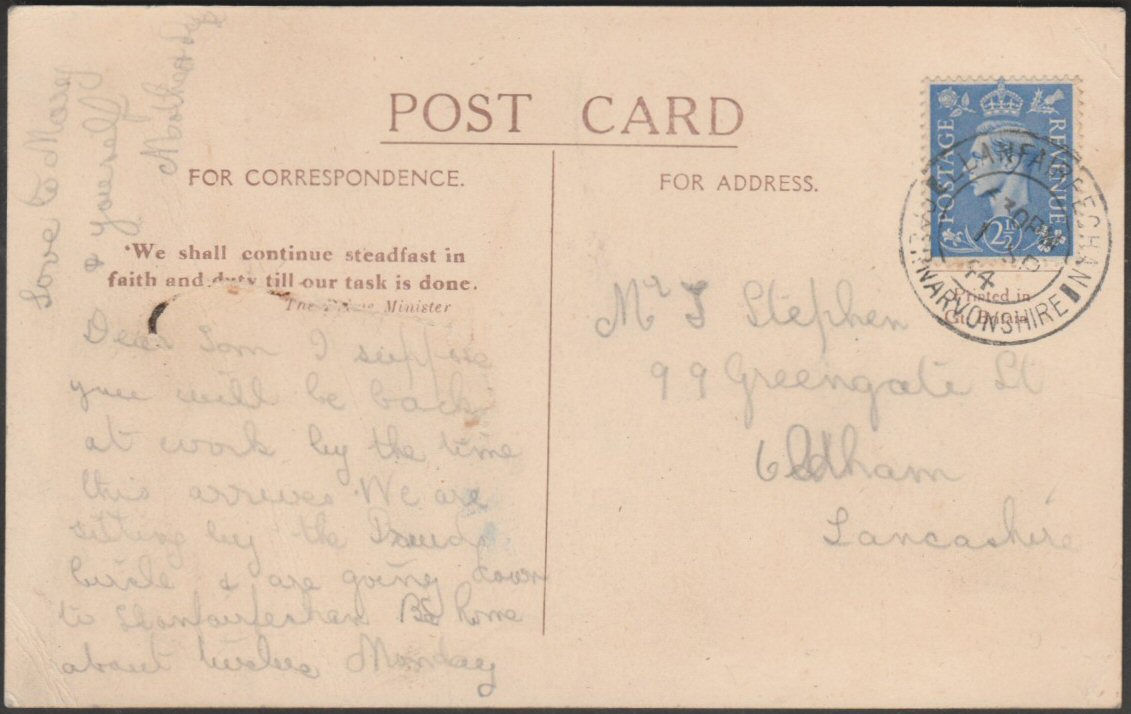 POST CARD
FOR CORRESPONDENCE.
FOR ADDRESS.
'We shall continue steadfast in
faith and duty till our task is done.
The Prime Minister
Dear Tom I suppose
you will be back
at work by the time
this arrives. We are
sitting by the Druids
Circle & are going down
to Llanfairfechan Be home
about twelve Monday
Love to
& yourself
Mother &
POSTAGE
REVENUE
2½D
LLANFAIRFECHAN
CAERNARVONSHIRE
30PM
1 SP
44
Printed in
Gt. Britain
Mr T Stephen
99 Greengate St
Oldham
Lancashire